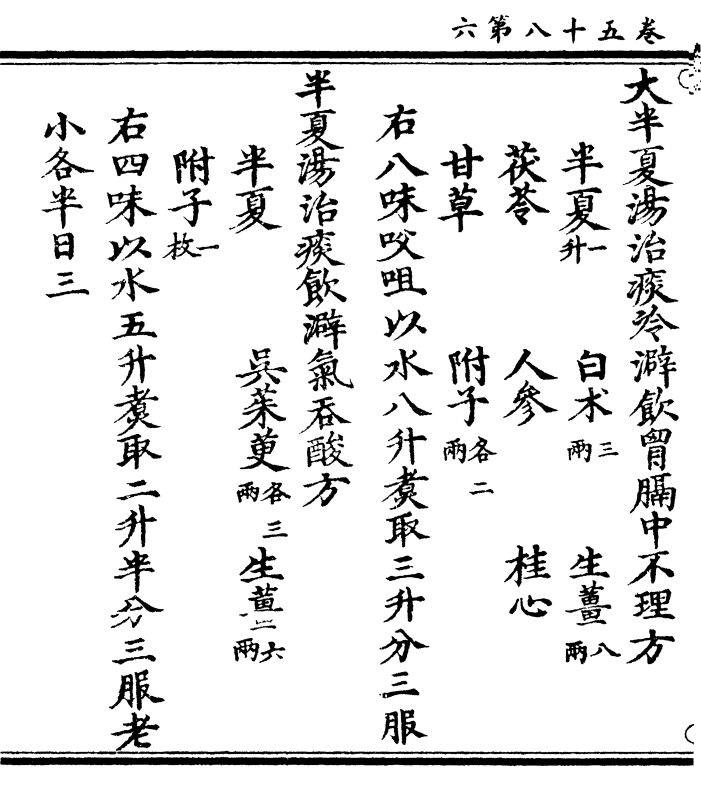 卷五十八第六
大半夏湯治痰冷澼飲胷膈中不理方
半夏一升 白术三兩 生薑八兩
茯苓 人參 桂心
甘草 附子各二兩
右八味㕮咀以水八升煑取三升分三服
半夏湯治痰飲澼氣吞酸方
半夏 吳茱萸各三兩 生薑六兩
附子一枚
右四味以水五升煑取二升半分三服老
小各半日三